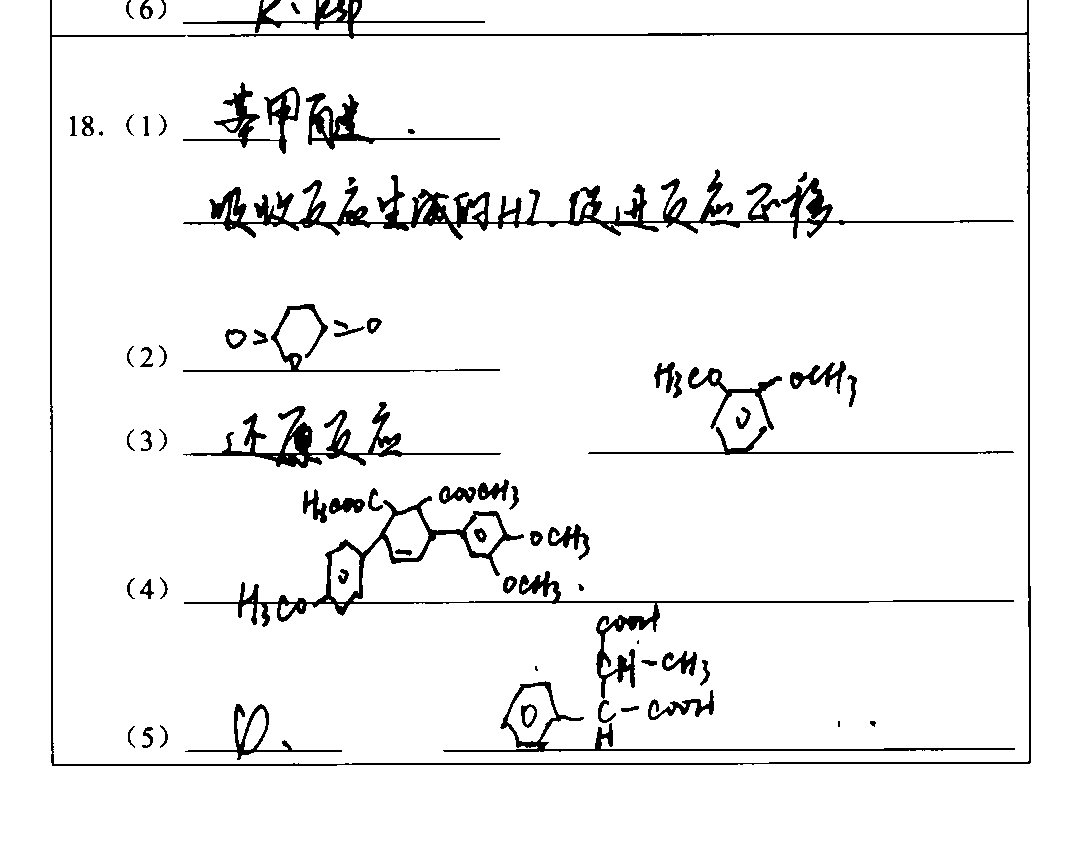 (6) K、Ksp
18. (1) 苯甲醛.
吸收反应生成的HI.促进反应正移.
(2) O= =O O
(3) 还原反应 H3CO OCH3
H3COOC COOCH3
OCH3
(4) H3CO OCH3.
COOH
CH-CH3
(5) D. C-COOH
H